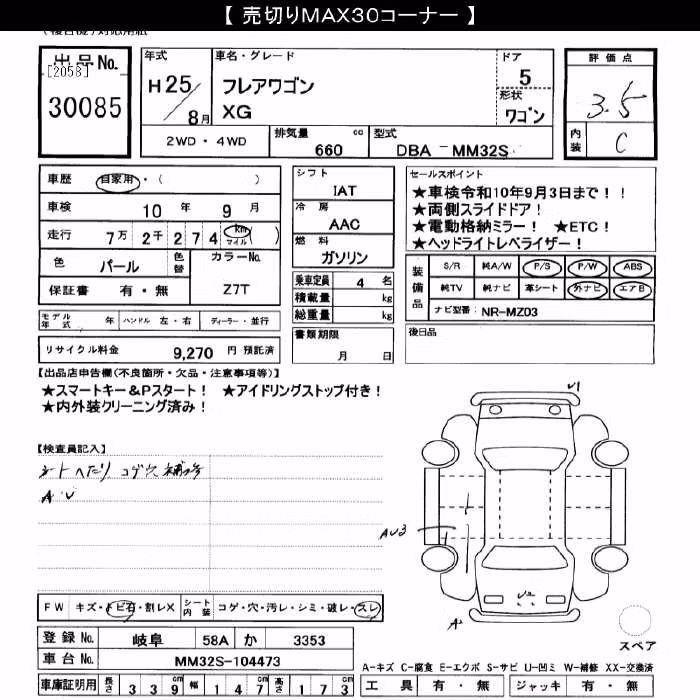 【 売切りMAX30コーナー 】
出品No.
[2058]
30085
年式
H25/8月
車名・グレード
フレアワゴン
XG
ドア
5
形状
ワゴン
評価点
3.5
内装
C
2WD ・ 4WD
排気量 cc
660
型式
DBA － MM32S
車歴 自家用 ・ ( )
車検 10 年 9 月
走行 7万 2千 2 7 4 km マイル ( )
色 パール 色替 カラーNo.
保証書 有 ・ 無 Z7T
モデル年式 年 ハンドル 左 ・ 右 ディーラー ・ 並行
リサイクル料金 9,270 円 預託済
シフト
IAT
冷房
AAC
燃料
ガソリン
乗車定員 4 名
積載量 kg
総重量 kg
書類期限
月 日
セールスポイント
★車検令和10年9月3日まで！！
★両側スライドドア！
★電動格納ミラー！ ★ETC！
★ヘッドライトレベライザー！
装備品
S/R 純A/W P/S P/W ABS
純TV 純ナビ 革シート 外ナビ エアB
ナビ型番： NR-MZ03
後日品
【出品店申告欄(不良箇所・欠品・注意事項等)】
★スマートキー＆Pスタート！ ★アイドリングストップ付き！
★内外装クリーニング済み！
【検査員記入】
シートヘタリ コゲ穴補修
A・U
U1
AU3
A2
FW キズ・トビ石・割レX シート内装 コゲ・穴・汚レ・シミ・破レ・スレ
登録No. 岐阜 58A か 3353
車台No. MM32S-104473
車庫証明用 長さ 3 3 9 cm 幅 1 4 7 cm 高さ 1 7 3 cm
スペア
A－キズ C－腐食 E－エクボ S－サビ U－凹ミ W－補修 XX－交換済
工具 有 ・ 無 ジャッキ 有 ・ 無